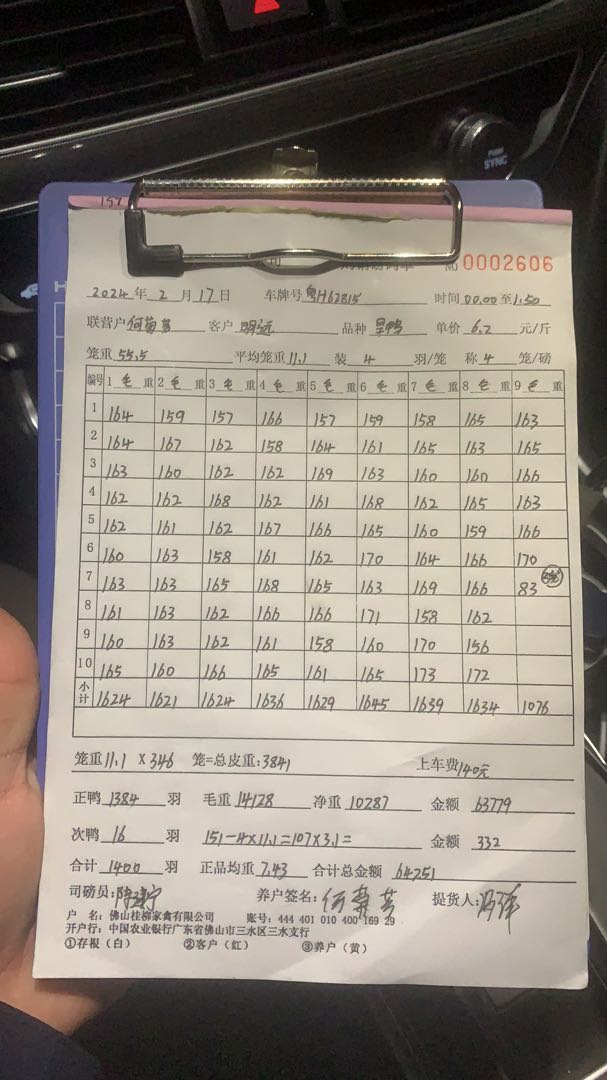 SYNC
157
司
№ 0002606
2024年 2 月 17 日 车牌号 粤H62815 时间 00.00至1.50
联营户 何菊芳 客户 明远 品种 旱鸭 单价 6.2 元/斤
笼重 55.5 平均笼重 11.1 装 4 羽/笼 称 4 笼/磅
编号 1 毛 重 2 毛 重 3 毛 重 4 毛 重 5 毛 重 6 毛 重 7 毛 重 8 毛 重 9 毛 重
1 164 159 157 166 157 159 158 165 163
2 164 167 162 158 164 161 165 163 165
3 163 160 162 162 169 163 160 160 166
4 162 162 168 162 161 168 162 165 163
5 162 161 162 167 166 165 160 159 166
6 160 163 158 161 162 170 164 166 170
7 163 163 165 168 165 163 169 166 83
8 161 163 162 166 166 171 158 162
9 160 163 162 161 158 160 170 156
10 165 160 166 165 161 165 173 172
小计 1624 1621 1624 1636 1629 1645 1639 1634 1076
笼重 11.1 X 346 笼=总皮重:3841 上车费 140元
正鸭 1384 羽 毛重 14128 净重 10287 金额 63779
次鸭 16 羽 151-4×11.1=107×3.1= 金额 332
合计 1400 羽 正品均重 7.43 合计总金额 64251
司磅员: 养户签名: 何菊芳 提货人:
户 名: 佛山桂柳家禽有限公司 账号: 444 401 010 400 169 29
开户行: 中国农业银行广东省佛山市三水区三水支行
①存根(白) ②客户(红) ③养户(黄)